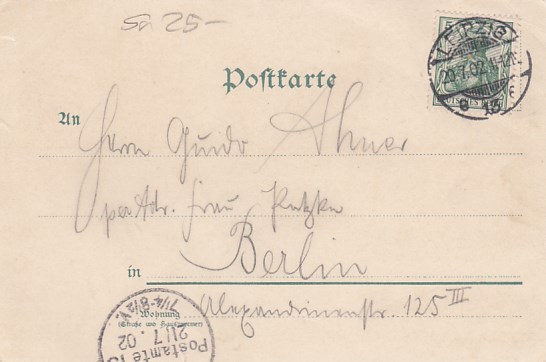 Sa 25-
LEIPZIG
20.7.02. 11-12V.
* 13 c
Postkarte
An
Herrn Guido Ahner
per Adr. Frau Putzke
in Berlin
Wohnung
(Straße und Hausnummer)
Alexandrinenstr. 125 III
7¼-8½V.
21/7.02
Postamte